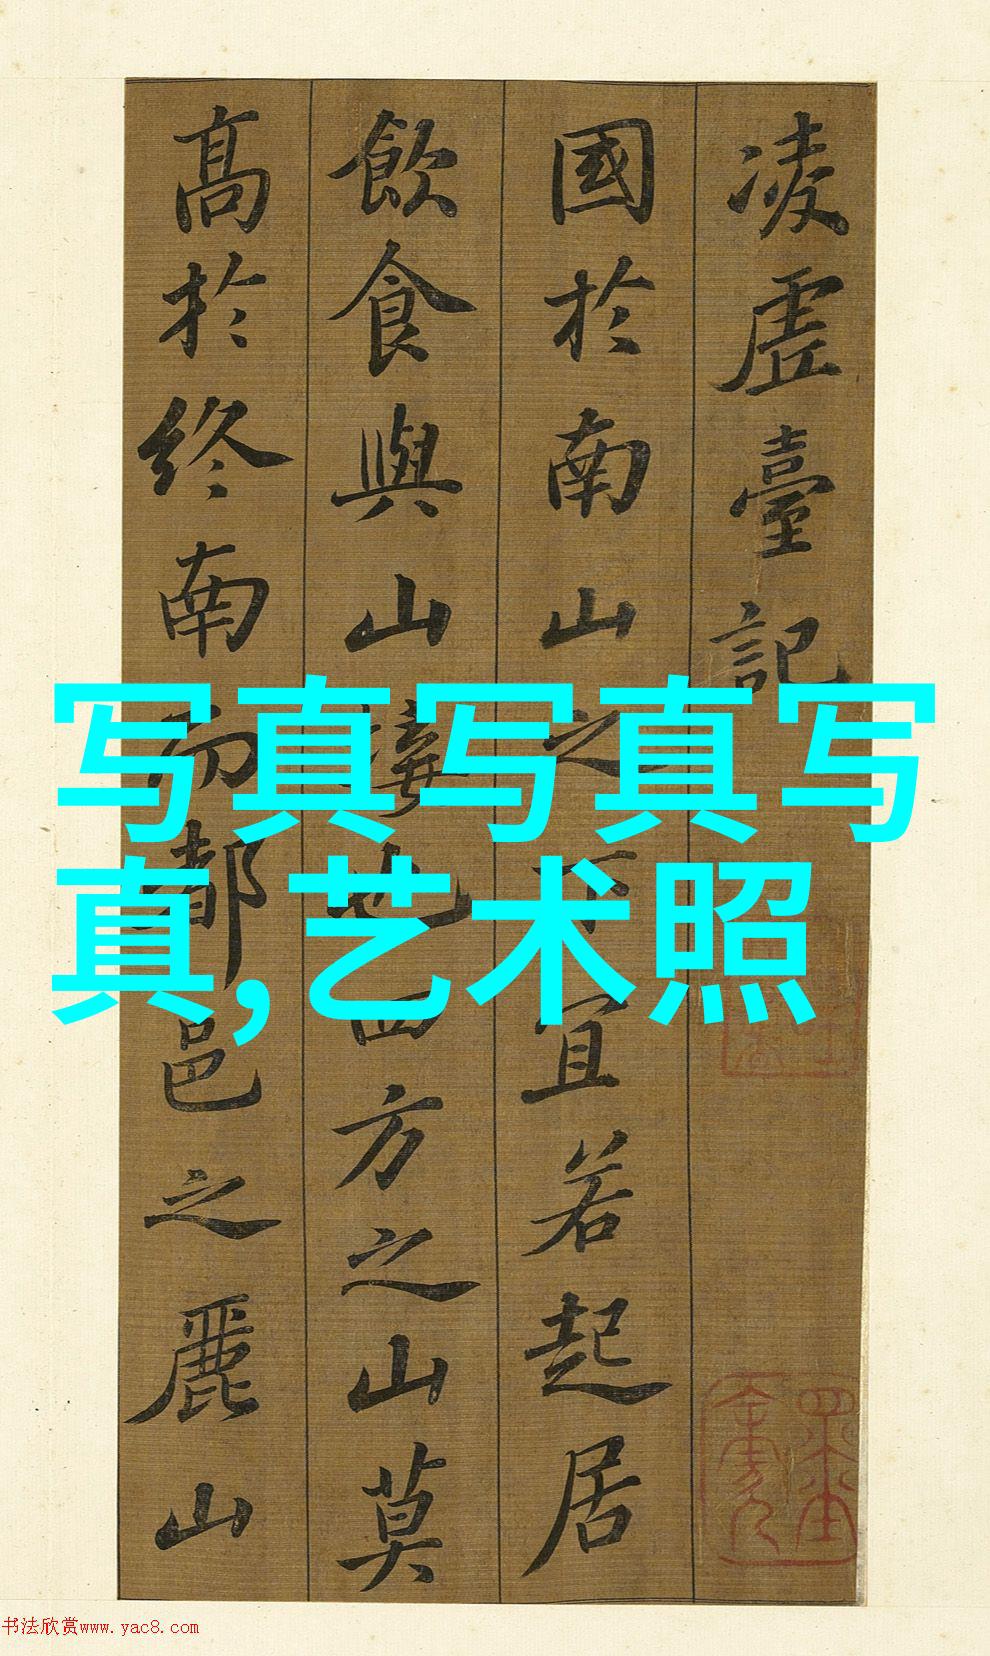 凌虛臺記
國於南山之下宜若起居
飲食與山接也四方之山莫
高於終南而都邑之麗山
写真写真写
真,艺术照
书法欣赏www.yac8.com